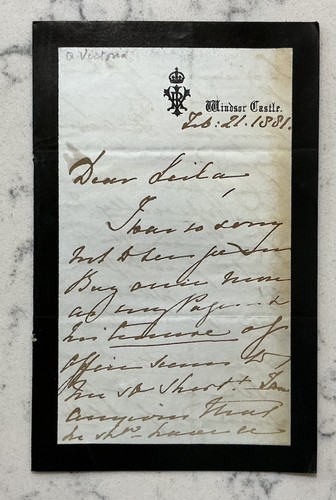 Q Victoria
VRI
Windsor Castle.
Feb: 21. 1881.
Dear Leila,
I was so sorry
not to see
Guy once more
as my Page &
his tenure of
office seems to
me so short & I am
anxious that
he shd. have a